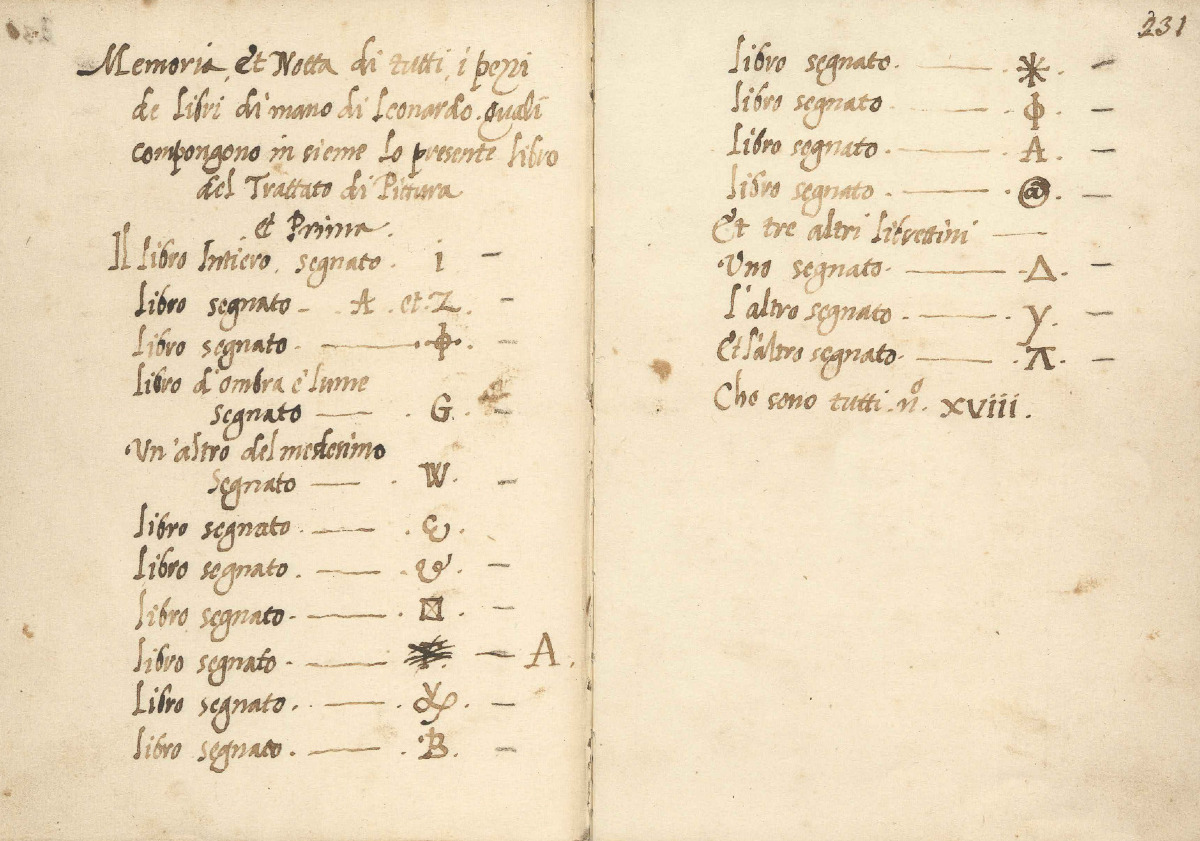 Memoria, Et Notta di tutti, i pezzi
de libri di mano di Leonardo. quali
compongono in sieme Lo presente libro
del Trattato di Pittura
et Prima.
Il libro Intiero, segnato. i –
Libro segnato – . A . et. Z. –
Libro segnato. —— . ϕ . –
Libro d'ombra e' lume
segnato —— . G. –
Un'altro del medesimo
segnato —— . W. –
Libro segnato. —— .
Libro segnato. —— . . –
Libro segnato. —— . ⊠ . –
Libro segnato. —— . – A.
Libro segnato. —— . –
Libro segnato. —— . B. –
231
Libro segnato. —— . –
Libro segnato —— . ϕ . –
Libro segnato. —— . A . –
Libro segnato. —— . . –
Et tre altri librettini ——
Uno segnato. —— . Δ . –
L'altro segnato. —— . y. –
Et l'altro segnato. —— . . –
Che sono tutti. nº. XVIII.